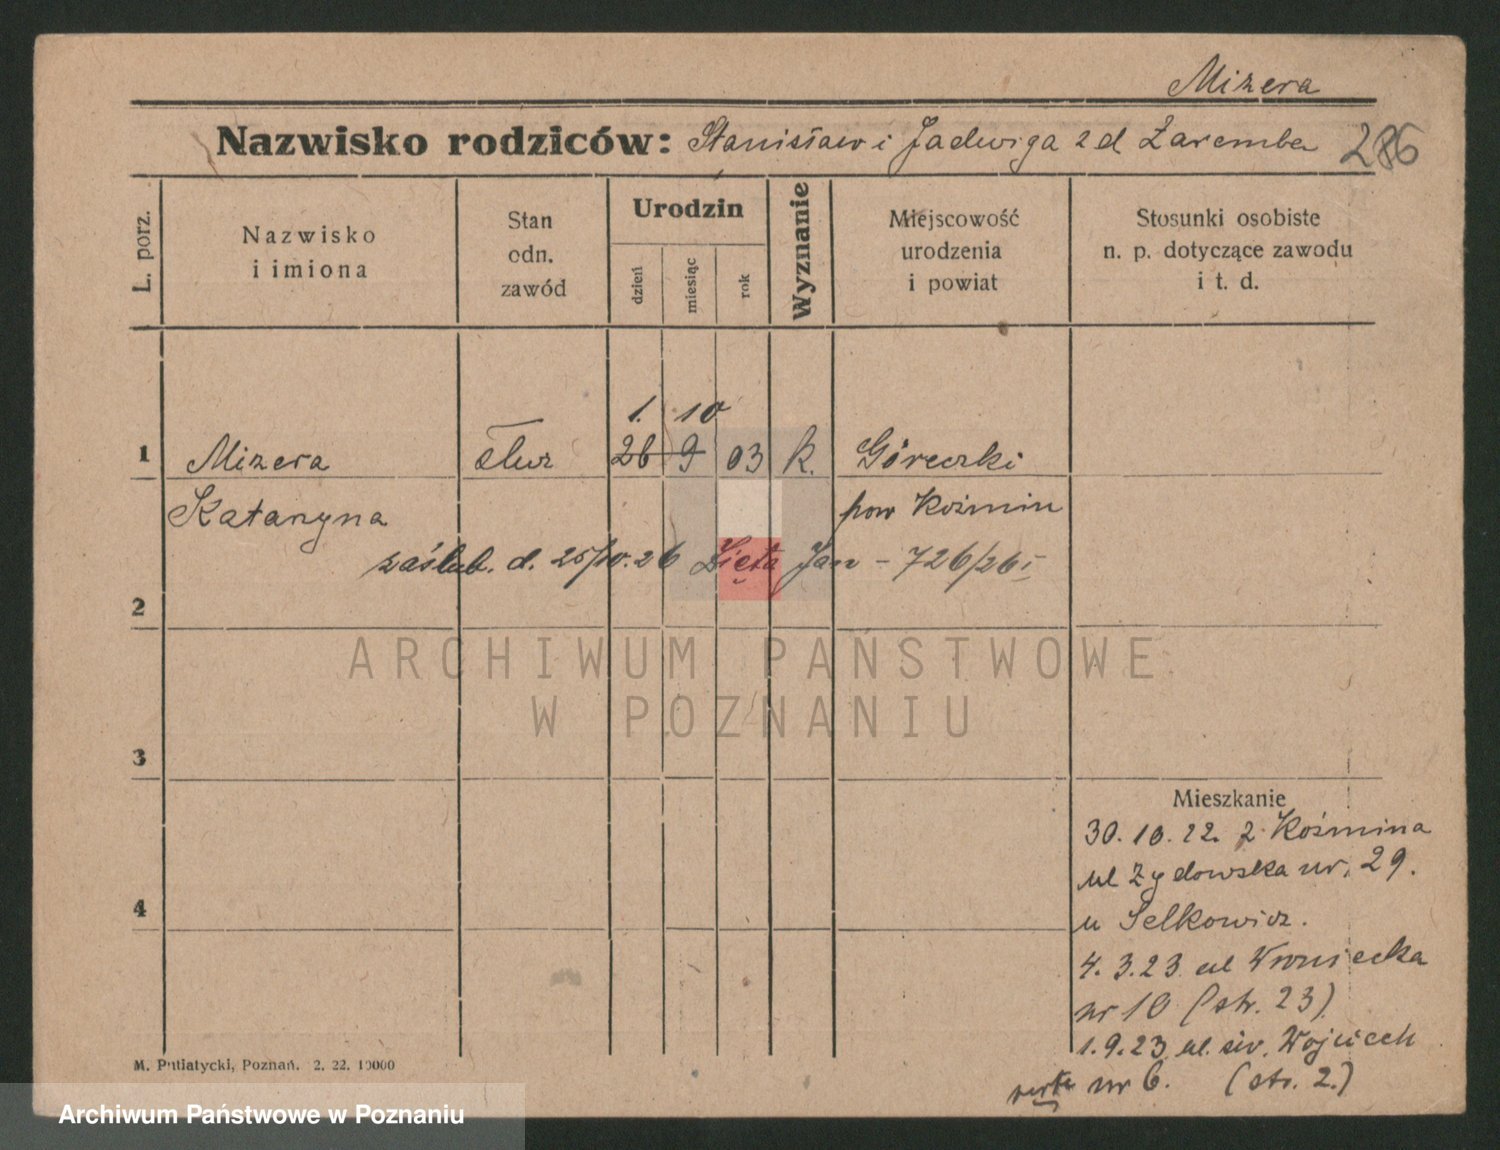 Mizera
Nazwisko rodziców: Stanisław i Jadwiga z d Zaremba 286
L. porz.
Nazwisko
i imiona
Stan
odn.
zawód
Urodzin
dzień
miesiąc
rok
Wyznanie
Miejscowość
urodzenia
i powiat
Stosunki osobiste
n. p. dotyczące zawodu
i t. d.
1. 10
1 Mizera służ 26 9 03 k. Góreczki
Katarzyna pow Koźmin
zaślub. d. 25/10.26 Zięta Jan - 726/26
2
ARCHIWUM PAŃSTWOWE
W POZNANIU
3
Mieszkanie
30.10.22. z Koźmina
ul Żydowska nr. 29.
4
u Selkowicz.
4.3.23 ul Wroniecka
nr 10 (str. 23)
1.9.23 ul. św. Wojciech
verte nr 6. (str. 2.)
M. Putiatycki, Poznań. 2. 22. 10000
Archiwum Państwowe w Poznaniu